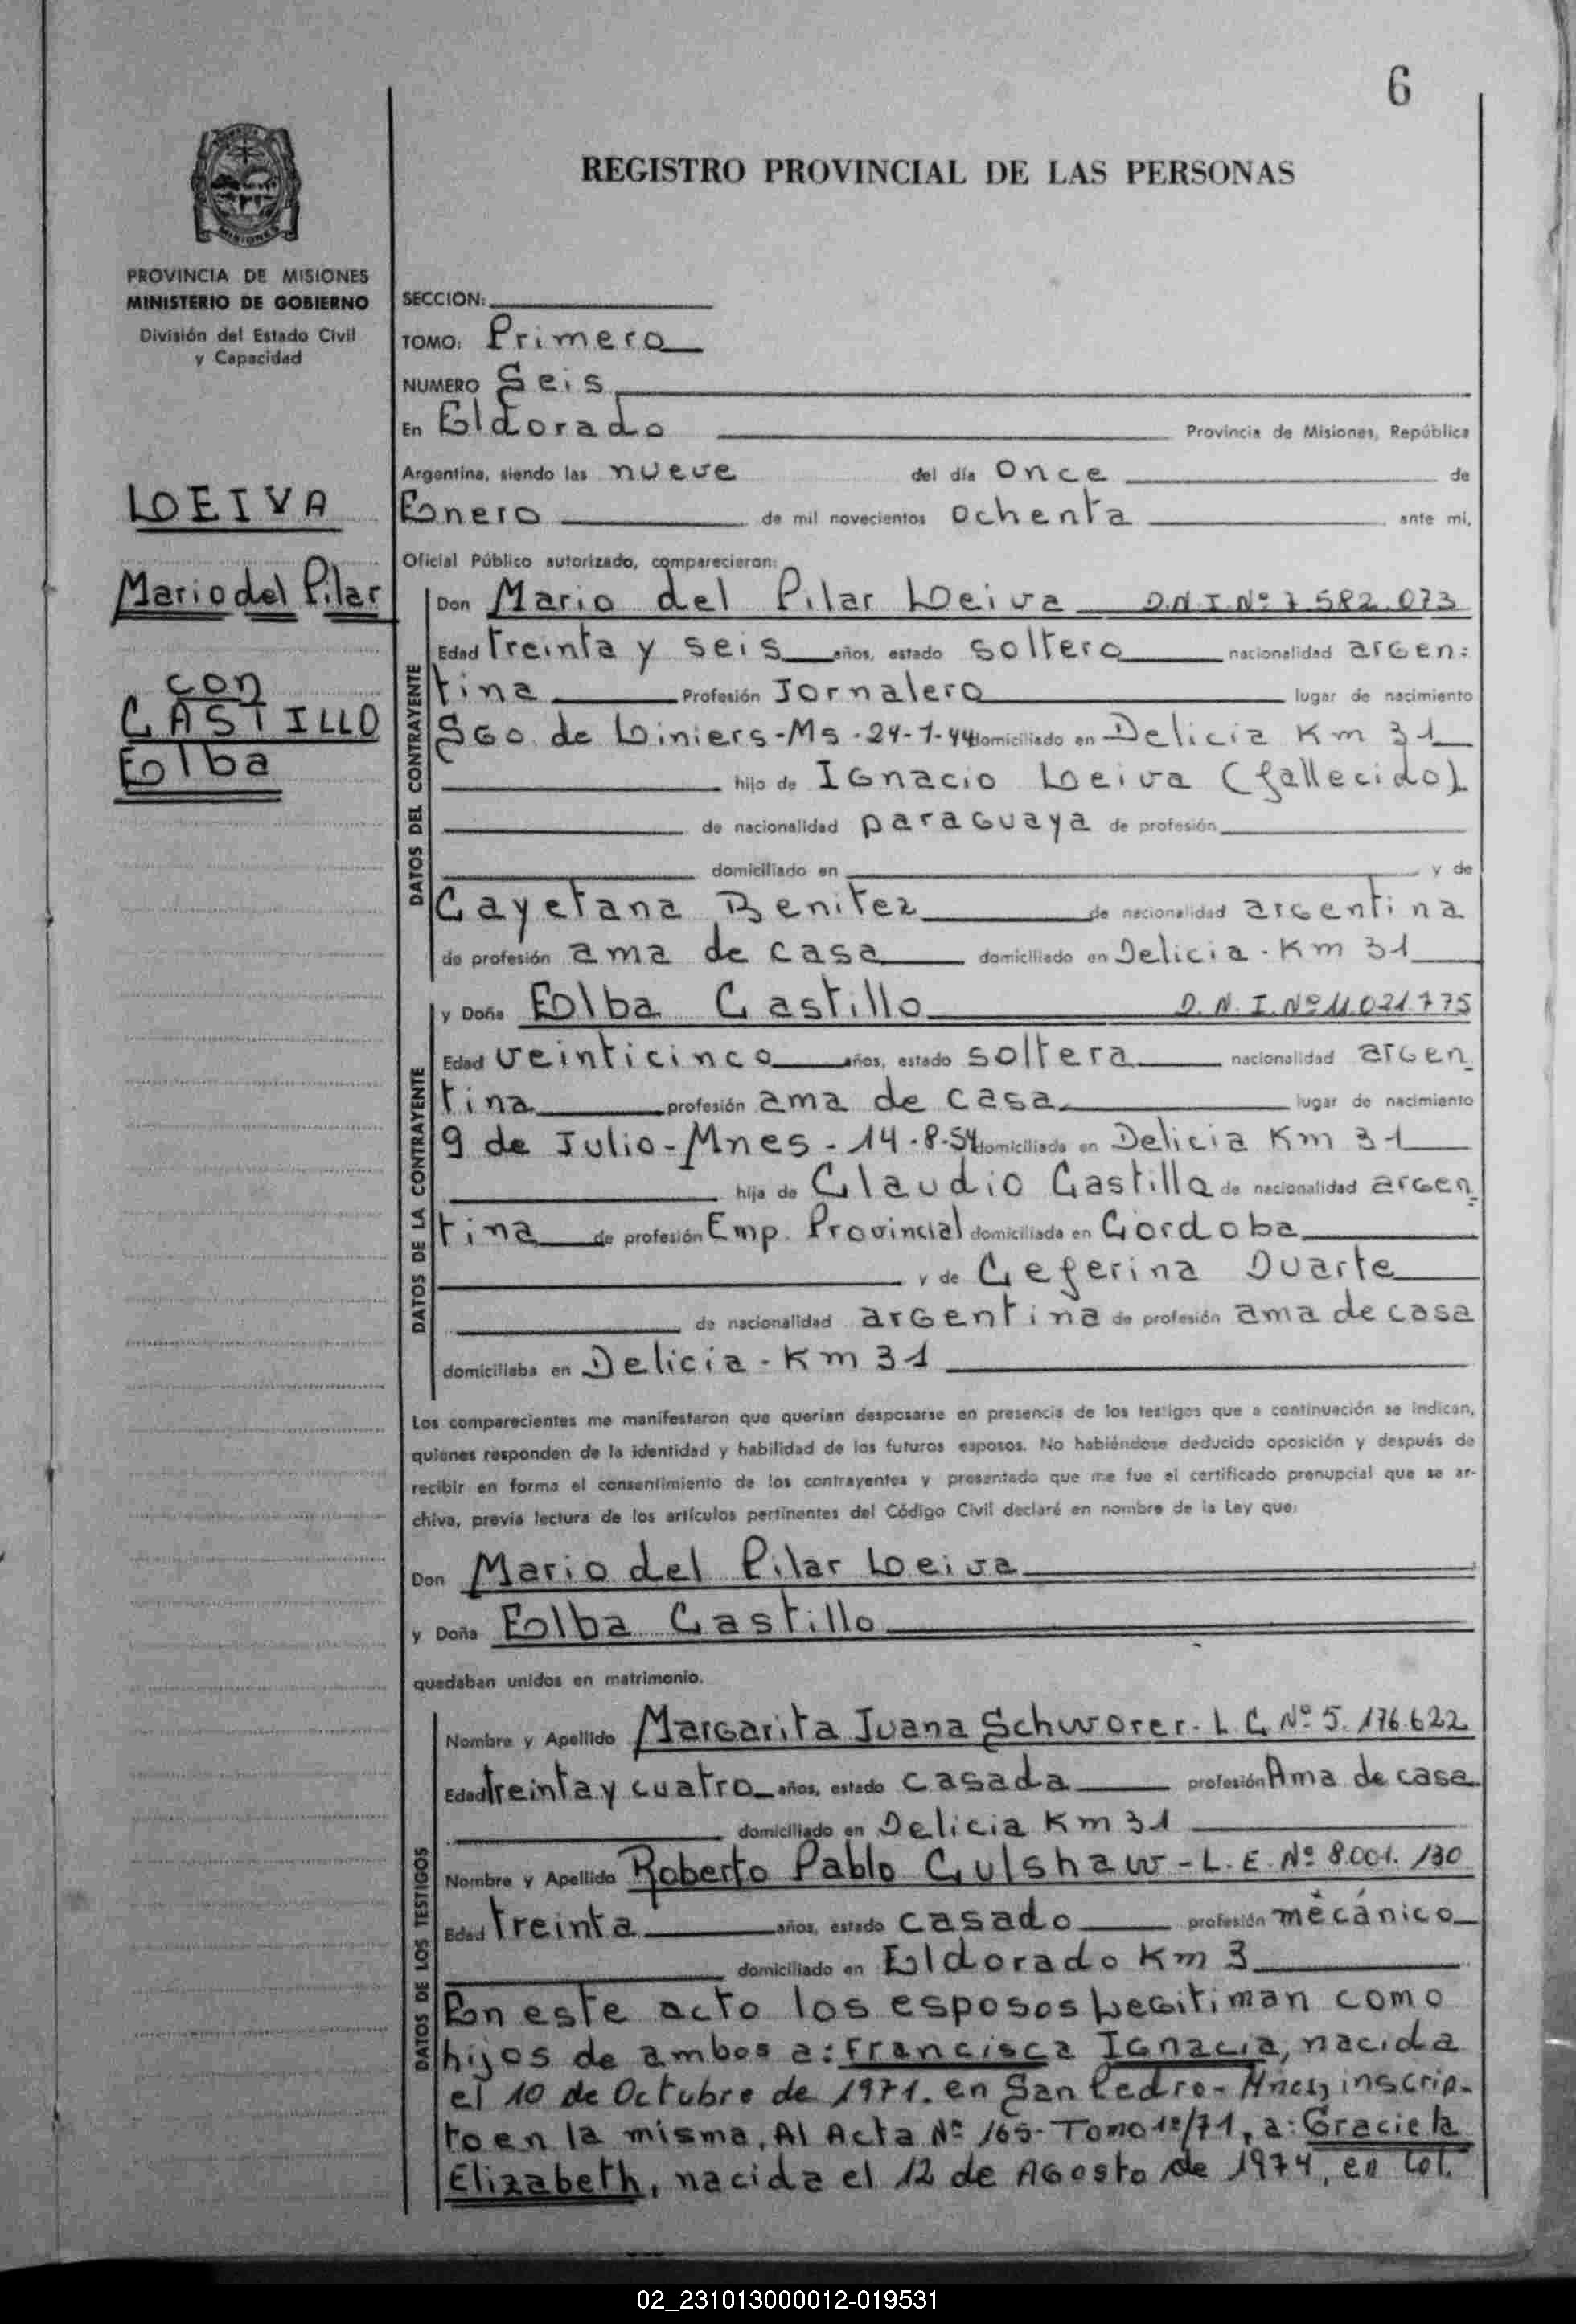 6
REGISTRO PROVINCIAL DE LAS PERSONAS
PROVINCIA DE MISIONES
MINISTERIO DE GOBIERNO
División del Estado Civil
y Capacidad
LOEIVA
Mario del Pilar
con
CASTILLO
Elba
SECCION:
TOMO: Primero
NUMERO Seis
En Eldorado Provincia de Misiones, República
Argentina, siendo las nueve del día Once de
Enero de mil novecientos ochenta ante mi,
Oficial Público autorizado, comparecieron:
DATOS DEL CONTRAYENTE
Don Mario del Pilar Loeiva D.N.I.Nº 7.582.073
Edad treinta y seis años, estado soltero nacionalidad argen=
tina Profesión Jornalero lugar de nacimiento
SGo. de Liniers-Ms-24-1-44 domiciliado en Delicia Km 31
hijo de Ignacio Loeiva (fallecido)
de nacionalidad paraguaya de profesión
domiciliado en y de
Cayetana Benitez de nacionalidad argentina
de profesión ama de casa domiciliado en Delicia-Km 31
DATOS DE LA CONTRAYENTE
y Doña Elba Castillo D.N.I.Nº 11.021.775
Edad veinticinco años, estado soltera nacionalidad argen_
tina profesión ama de casa lugar de nacimiento
9 de Julio-Mnes-14-8-54 domiciliada en Delicia Km 31
hija de Claudio Castillo de nacionalidad argen=
tina de profesión Emp. Provincial domiciliada en Cordoba
y de Ceferina Duarte
de nacionalidad argentina de profesión ama de casa
domiciliaba en Delicia-Km 31
Los comparecientes me manifestaron que querían desposarse en presencia de los testigos que a continuación se indican,
quienes responden de la identidad y habilidad de los futuros esposos. No habiéndose deducido oposición y después de
recibir en forma el consentimiento de los contrayentes y presentado que me fue el certificado prenupcial que se ar-
chiva, previa lectura de los artículos pertinentes del Código Civil declaré en nombre de la Ley que:
Don Mario del Pilar Loeiva
y Doña Elba Castillo
quedaban unidos en matrimonio.
DATOS DE LOS TESTIGOS
Nombre y Apellido Margarita Juana Schworer-L.C.Nº 5.176.622
Edad treinta y cuatro años, estado casada profesión Ama de casa
domiciliado en Delicia Km 31
Nombre y Apellido Roberto Pablo Culshaw-L.E.Nº 8.001.130
Edad treinta años, estado casado profesión mecánico
domiciliado en Eldorado Km 3
En este acto los esposos Legitiman como
hijos de ambos a: Francisca Ignacia, nacida
el 10 de Octubre de 1971. en San Pedro-Mnes, inscrip-
to en la misma, Al Acta Nº 165-Tomo 1º/71, a: Graciela
Elizabeth, nacida el 12 de Agosto de 1974, en Col.
02_231013000012-019531